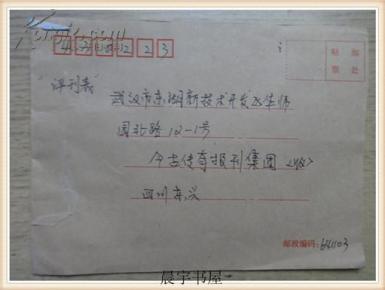 430223
贴邮
票处
"评刊表"
武汉市东湖新技术开发区华师
园北路12-1号
今古传奇报刊集团 <收>
四川东兴
邮政编码：641103
晨宇书屋